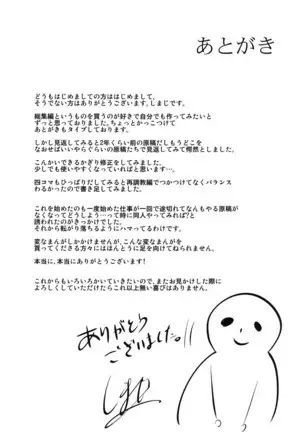 あとがき
どうもはじめましての方ははじめまして、
そうでない方はありがとうございます。しまじです。
総集編というものを買うのが好きで自分でも作ってみたいと
ずっと思っておりました。ちょっとかっこつけて
あとがきもタイプしております。
しかし見返してみると2年くらい前の原稿だしもうどこを
なおせばいいやらぐらいの原稿たちで見返してみて愕然としました。
こんかいできるかぎり修正をしてみました。
少しでも使いやすくなっていればいいですが…
四コマもひっぱりだしてみると再調教編でつかつけてなくバランス
わるかったので書き足してみました。
これを始めたのも一度始めた仕事が一回で途切れてなんもやる原稿が
なくなってどうしよう…って時に同人やってみれば!?と
誘われたのがきっかけでした。
それから転がり落ちるようにハマってるわけです。
変なまんがしかかけませんが、こんな変なまんがを
買ってくださる方々にはほんとうに足を向けてねられません。
本当に、本当にありがとうございます!
これからもいろいろかいていきたいので、またお見かけした際に
よろしくしていただけたらこれ以上無い喜びはありません。
ありがとう
ございました。!!